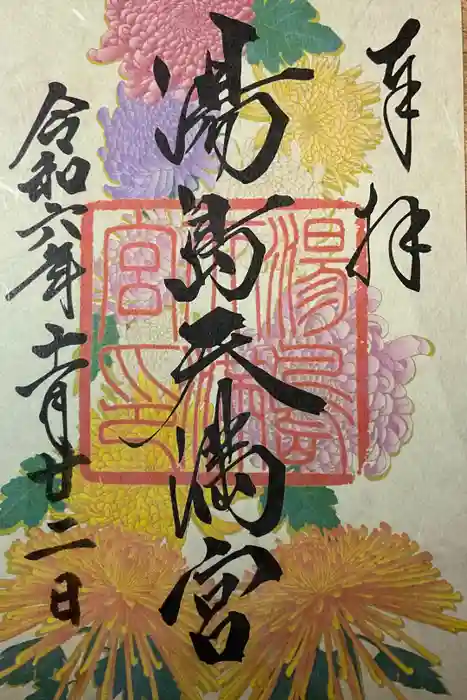 奉拝
湯島天満宮
令和六年十一月廿二日
湯島天満宮印